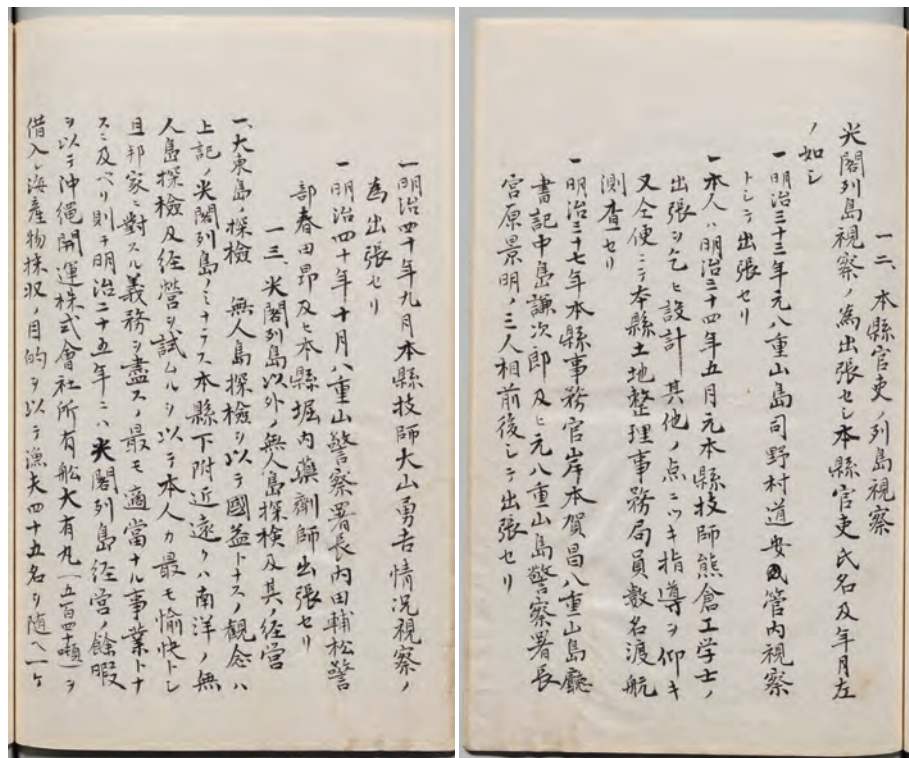 一二、本縣官吏ノ列島視察
尖閣列島視察ノ為出張セシ本縣官吏氏名及年月左
ノ如シ
一明治三十三年元八重山島司野村道安管内視察
トシテ出張セリ
一本人ハ明治三十四年五月元本縣技師熊倉工学士ノ
出張ヲ乞ヒ設計其他ノ点ニツキ指導ヲ仰キ
又仝便ニテ本縣土地整理事務局員數名渡航
測査セリ
一明治三十七年本縣事務官岸本賀昌八重山島廳
書記中島謙次郎及ヒ元八重山島警察署長
宮原景明ノ三人相前後シテ出張セリ
一明治四十年九月本縣技師大山勇吉情況視察ノ
為出張セリ
一明治四十年十月八重山警察署長内田輔松警
部春田昂及ヒ本縣堀内藥劑師出張セリ
一三、尖閣列島以外ノ無人島探検及其ノ経営
一、大東島ノ探檢 無人島探檢ヲ以テ國益トナスノ観念ハ
上記ノ尖閣列島ノミナラス本縣下附近遠クハ南洋ノ無
人島探檢及経營ヲ試ムルヲ以テ本人カ最モ愉快トシ
且邦家ニ對スル義務ヲ盡スノ最モ適當ナル事業トナ
スニ及ベリ則チ明治二十五年ニハ尖閣列島経営ノ餘暇
ヲ以テ沖縄開運株式會社所有船大有丸(五百四十噸)ヲ
借入レ海産物採収ノ目的ヲ以テ漁夫四十五名ヲ随ヘ一ケ